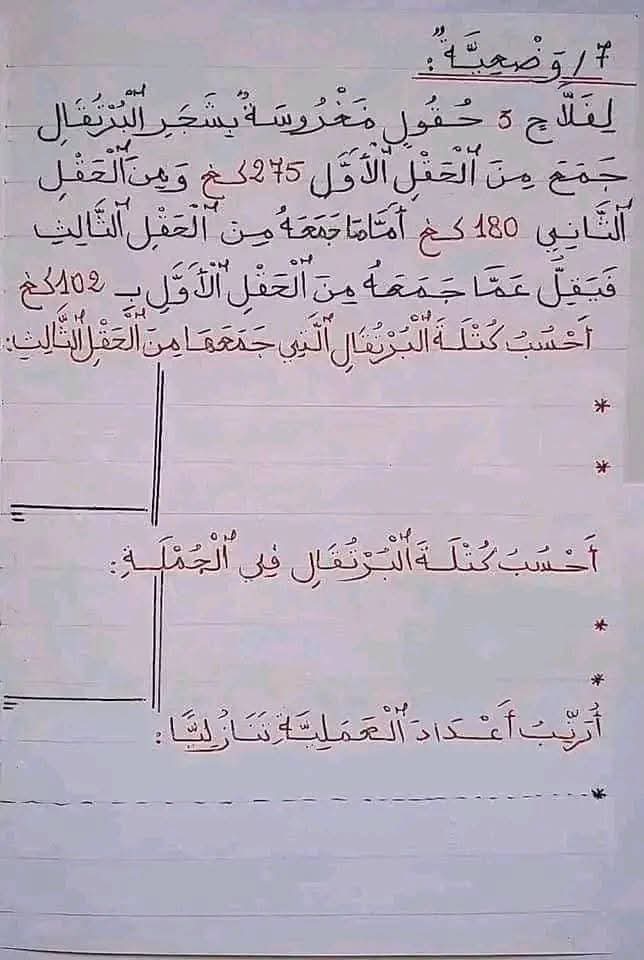 7/ وَضْعِيَّةٌ:
لِفَلَّاحٍ 3 حُقُولٍ مَغْرُوسَةٌ بِشَجَرِ الْبُرْتُقَالِ
جَمَعَ مِنَ الْحَقْلِ الْأَوَّلِ 275 كغ وَمِنَ الْحَقْلِ
الثَّانِي 180 كغ أَمَّا مَا جَمَعَهُ مِنَ الْحَقْلِ الثَّالِثِ
فَيَقِلُّ عَمَّا جَمَعَهُ مِنَ الْحَقْلِ الْأَوَّلِ بِـ 102 كغ
أَحْسُبُ كُتْلَةَ الْبُرْتُقَالِ الَّتِي جَمَعَهَا مِنَ الْحَقْلِ الثَّالِثِ:
*
*
=
أَحْسُبُ كُتْلَةَ الْبُرْتُقَالِ فِي الْجُمْلَةِ:
*
*
=
أُرَتِّبُ أَعْدَادَ الْعَمَلِيَّةِ تَنَازُلِيًّا:
*